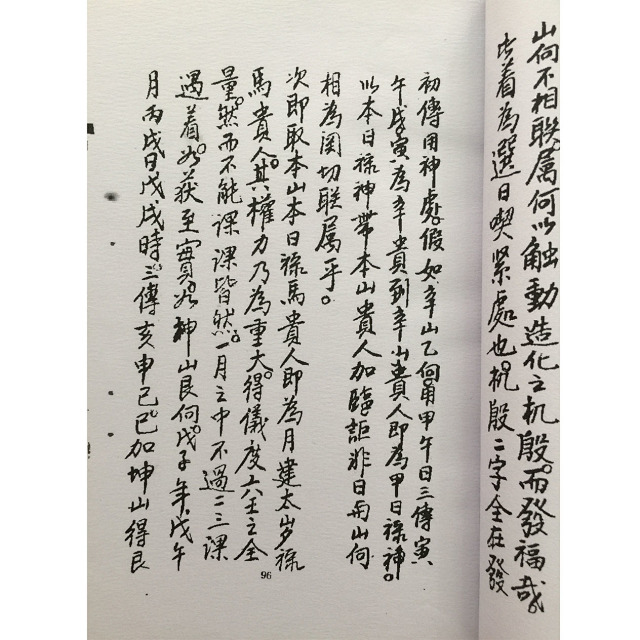 山向不相聯属何以触動造化之机殷。而發福哉。
此着為選日喫紧處也。机殷二字全在發
初傳用神處。假如辛山乙向用甲午日三傳寅
午戌寅為辛貴到辛山貴人即為甲日禄神。
以本日禄神帶本山貴人加臨詎非日与山向
相為関切联属乎。
次即取本山本日禄馬貴人即為月建太岁禄
馬貴人。其權力乃為重大。得儀度六壬之全
量。然而不能課課皆然。一月之中不過二三課
遇着。如获至寳。如坤山艮向。戊子年。戊午
月丙戌日戊戌時。三傳亥申巳。巳加坤山得艮
96